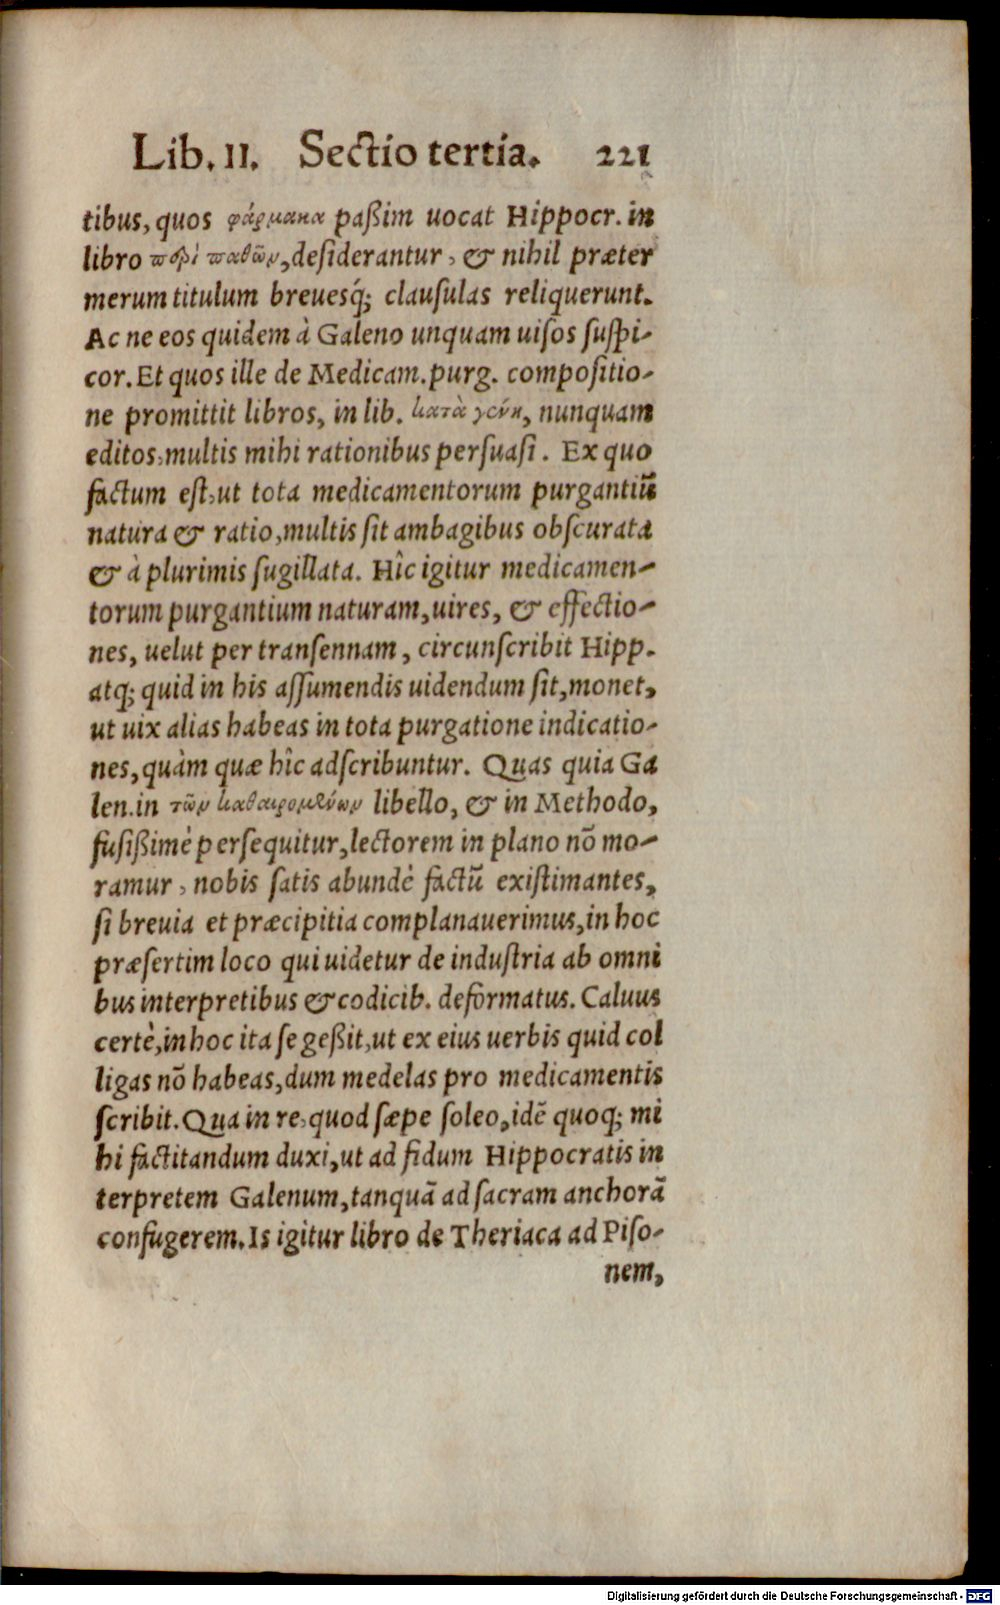 Lib. II. Sectio tertia. 221
tibus, quos φάρμακα paßim uocat Hippocr. in
libro περὶ παθῶν, desiderantur, & nihil præter
merum titulum breuesq́; clausulas reliquerunt.
Ac ne eos quidem à Galeno unquam uisos suspi-
cor. Et quos ille de Medicam. purg. compositio-
ne promittit libros, in lib. κατὰ γένη, nunquam
editos, multis mihi rationibus persuasi. Ex quo
factum est, ut tota medicamentorum purgantiū
natura & ratio, multis sit ambagibus obscurata
& à plurimis sugillata. Hîc igitur medicamen-
torum purgantium naturam, uires, & effectio-
nes, uelut per transennam, circunscribit Hipp.
atq; quid in his assumendis uidendum sit, monet,
ut uix alias habeas in tota purgatione indicatio-
nes, quàm quæ hîc adscribuntur. Quas quia Ga
len. in τῶν καθαιρομένων libello, & in Methodo,
fusißimè persequitur, lectorem in plano nõ mo-
ramur, nobis satis abundè factũ existimantes,
si breuia et præcipitia complanauerimus, in hoc
præsertim loco qui uidetur de industria ab omni
bus interpretibus & codicib. deformatus. Caluus
certè, in hoc ita se geßit, ut ex eius uerbis quid col
ligas nõ habeas, dum medelas pro medicamentis
scribit. Qua in re, quod sæpe soleo, idẽ quoq; mi
hi factitandum duxi, ut ad fidum Hippocratis in
terpretem Galenum, tanquã ad sacram anchorã
confugerem. Is igitur libro de Theriaca ad Piso-
nem,
Digitalisierung gefördert durch die Deutsche Forschungsgemeinschaft - DFG